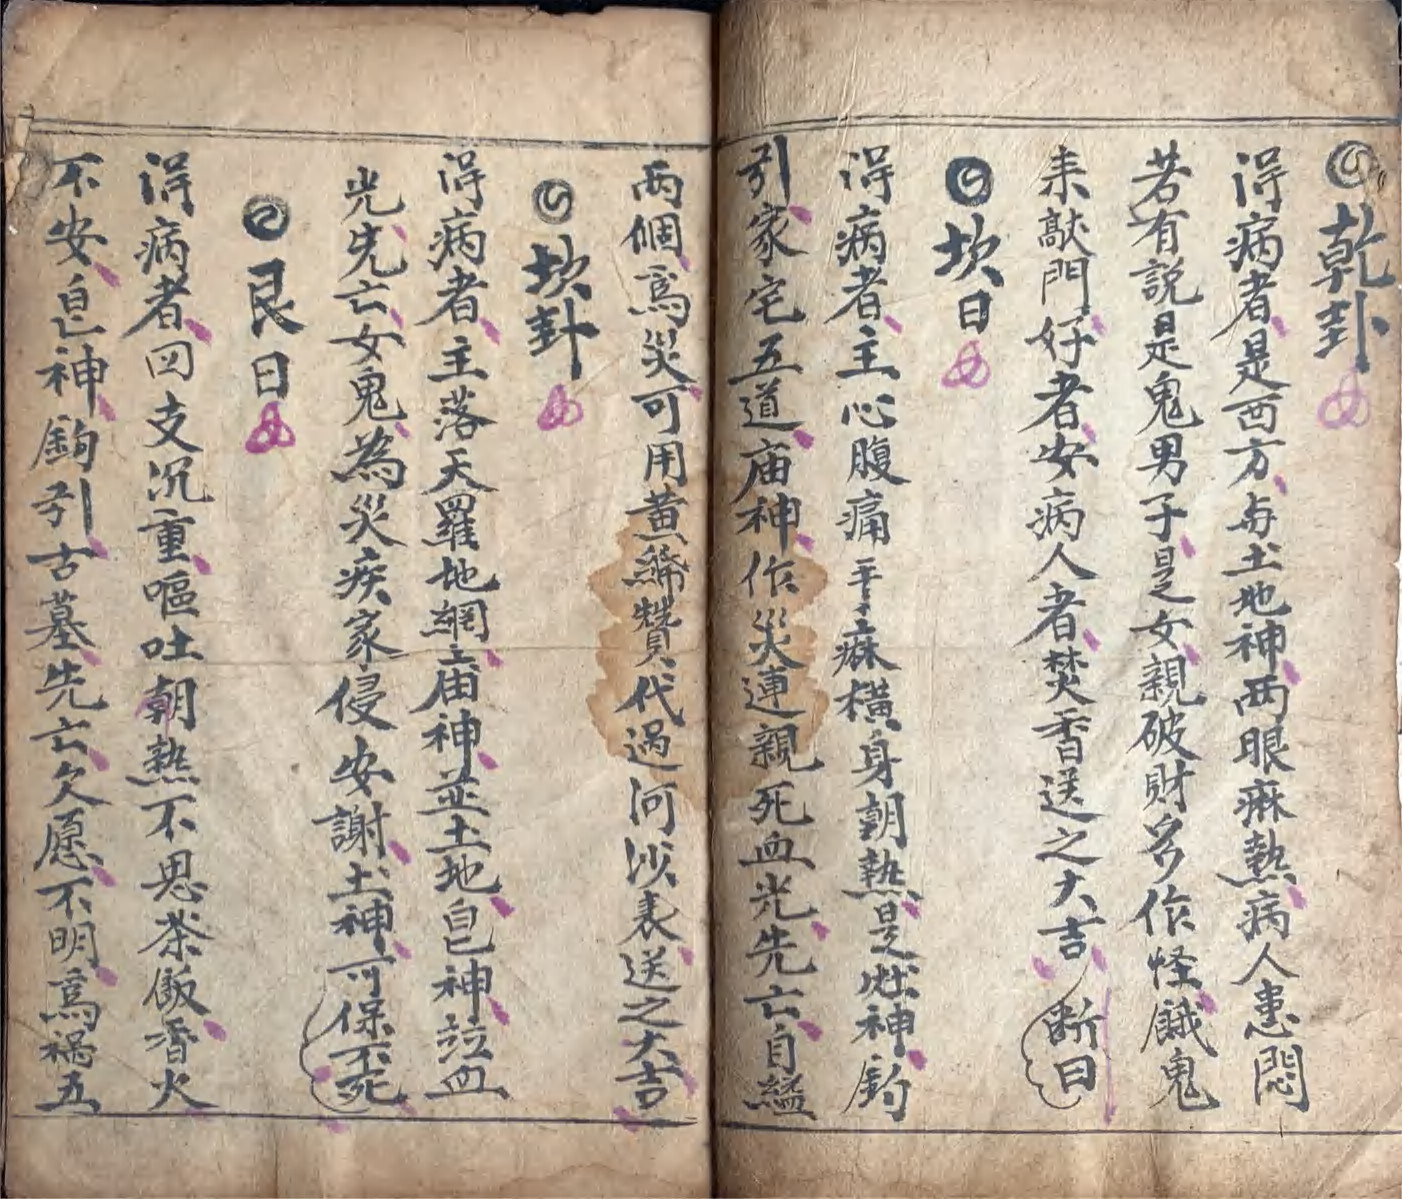 乾卦
淂病者是西方与土地神两眼痳熱病人患悶
若有説是鬼男子是女親破財多作怪餓鬼
耒敲門好者安病人者焚香送之大吉 断曰
坎日
淂病者主心腹痛手痳橫身朝熱是灶神鈎
引家宅五道庙神作災連親死血光先亡自縊
两個爲災可用黄錢代過河沙表送之大吉
坎卦
淂病者主落天羅地網庙神並土地皀神泣血
光先亡女鬼為災疾家侵安謝土神可保不死
艮日
淂病者四支沉重嘔吐朝熱不思茶飯香火
不安皀神鈎引古墓先亡欠愿不明爲禍五